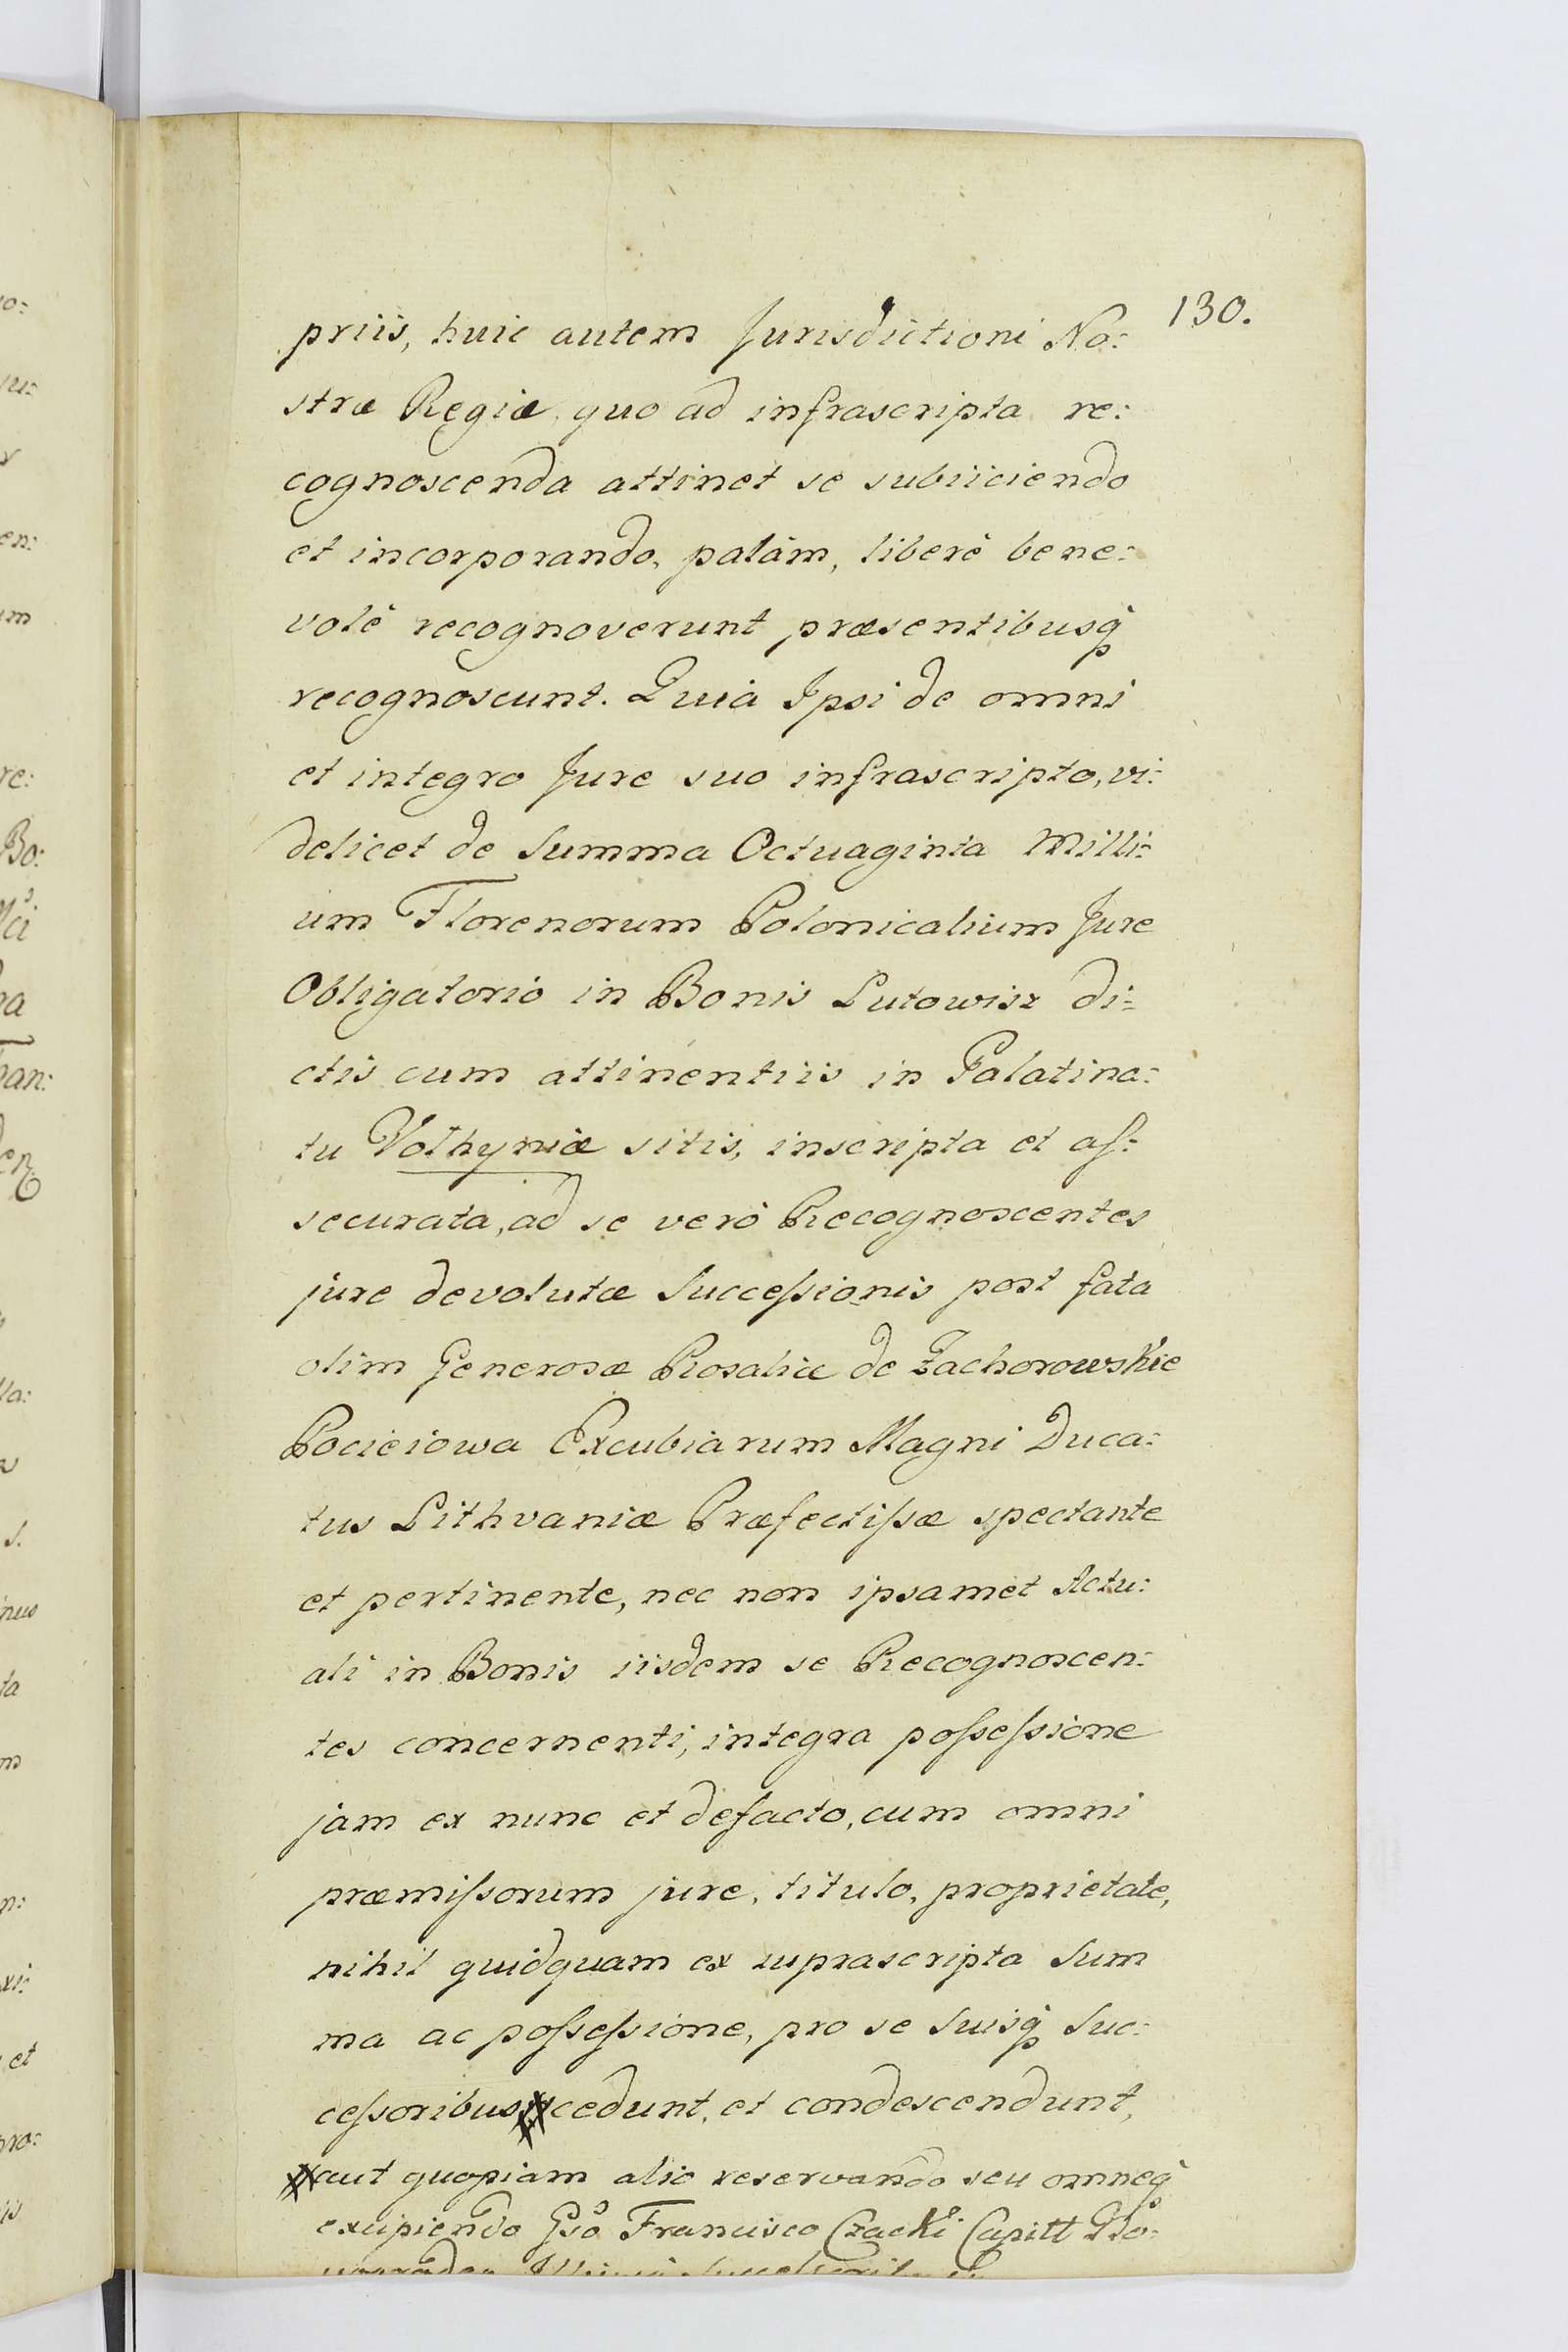 130.
priis, huic autem Jurisdictioni No:
stræ Regiæ quo ad infrascripta re:
cognoscenda attinet se subiiciendo
et incorporando, palàm, liberè bene:
volè recognoverunt præsentibusq́
recognoscunt. Quia Ipsi de omni
et integro Jure suo infrascripto, vi:
delicet de Summa Octuaginta Milli:
um Florenorum Polonicalium Jure
Obligatorio in Bonis Lutowisz di:
ctis cum attinentiis in Palatina:
tu Volhyniæ sitis, inscripta et aſ:
securata, ad se verò Recognoscentes
jure devolutæ Succeſsionis post fata
olim Generosæ Rosaliæ de Zachorowskie
Pocieiowa Excubiarum Magni Duca:
tus Lithvaniæ Præfectiſsæ spectante
et pertinente, nec non ipsamet Actu:
ali in Bonis iisdem se Recognoscen:
tes concernenti, integra poſseſsione
jam ex nunc et defacto, cum omni
præmiſsorum jure, titulo, proprietate,
nihil quidquam ex suprascripta Sum
ma ac poſseſsione, pro se Suisq́ Suc:
ceſsoribus cedunt, et condescendunt,
aut quopiam alio reservando seu omneq́
excipiendo Gso Francisco Czacki Capitt